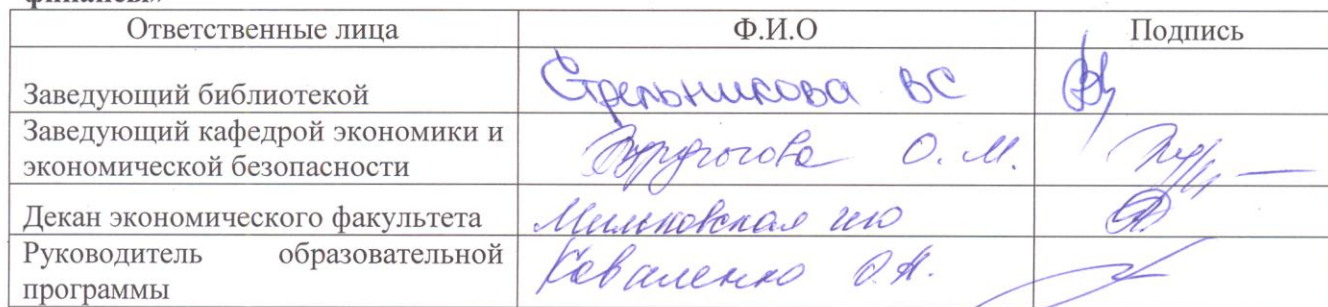 финансы»
Ответственные лица Ф.И.О Подпись
Заведующий библиотекой Стрельникова ВС
Заведующий кафедрой экономики и
экономической безопасности О. М.
Декан экономического факультета Мильковская
Руководитель образовательной Коваленко О.А.
программы